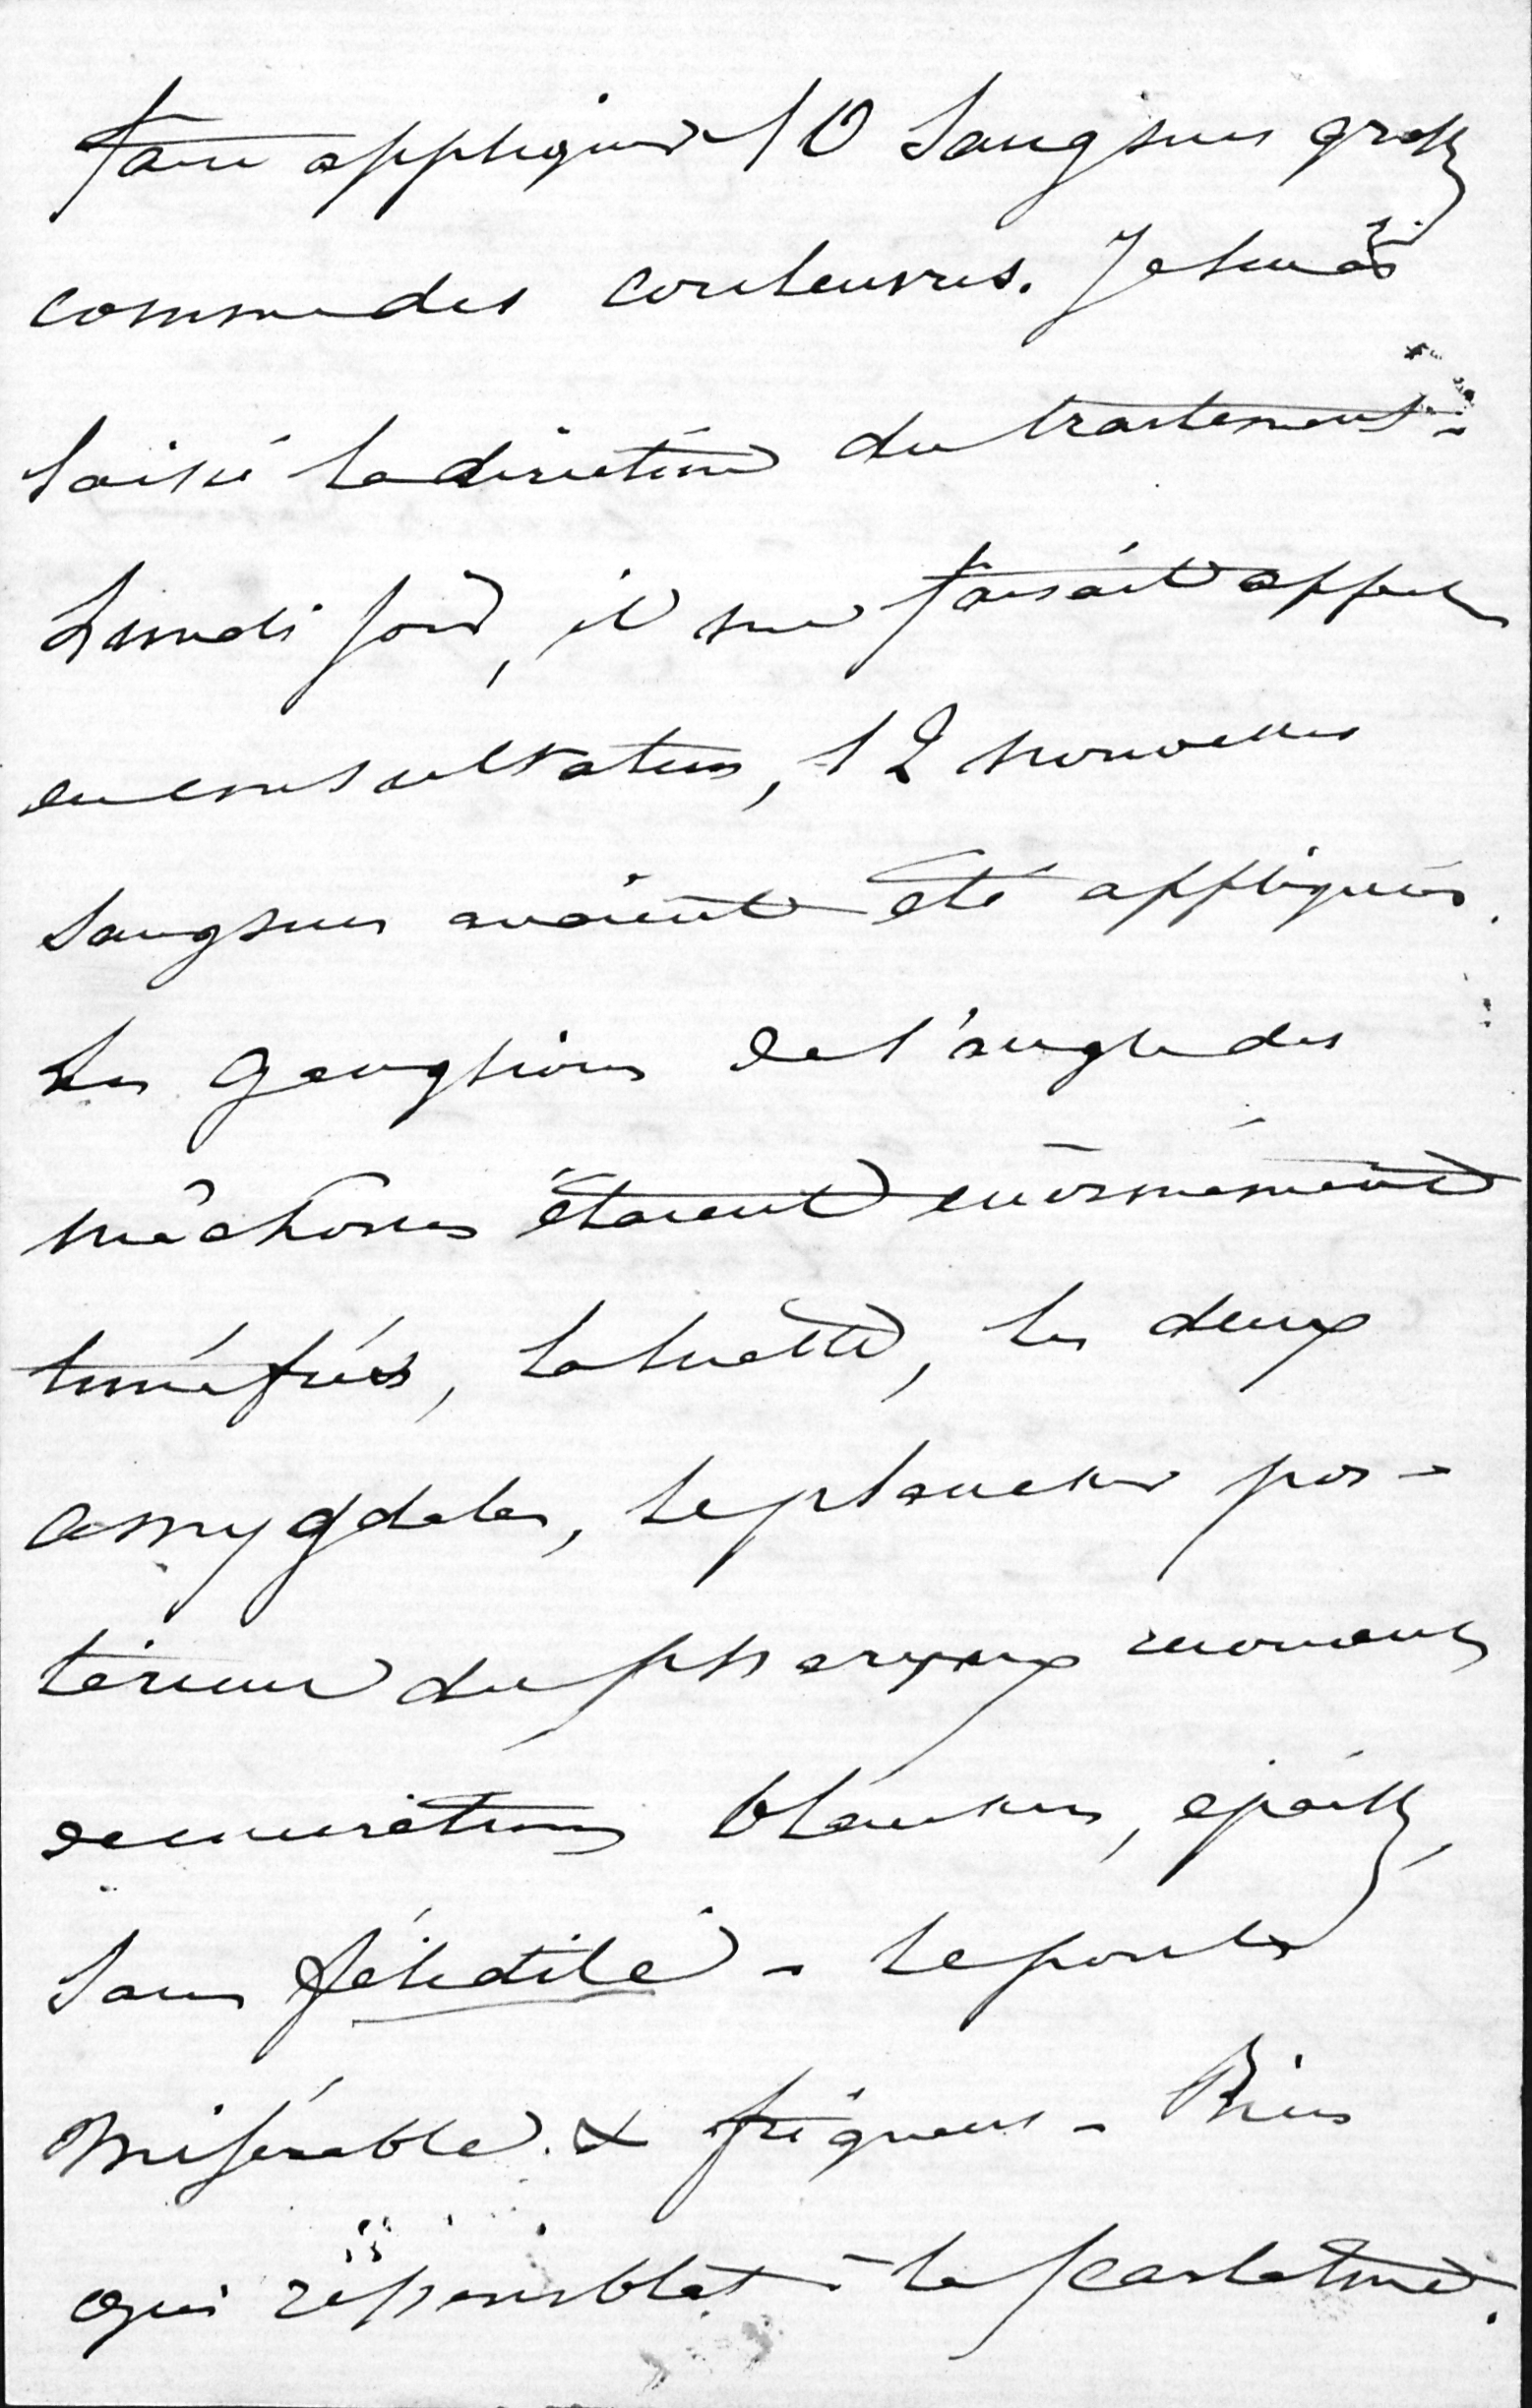 faire appliquer 10 sangsues grosses
comme des couleuvres. Je lui ai
laissé la direction du traitement -
Lundi soir, il me faisait appeler
en consultation, 12 nouvelles
sangsues avaient été appliquées.
Les ganglions de l'angle des
mâchoires étaient énormément
tuméfiés, la luette, les deux
amygdales, le plancher pos-
térieur du pharynx
blanches, épaisses,
sans fétidité - le pouls
misérable & fréquent - Rien
qui ressemblat à la scarlatine.